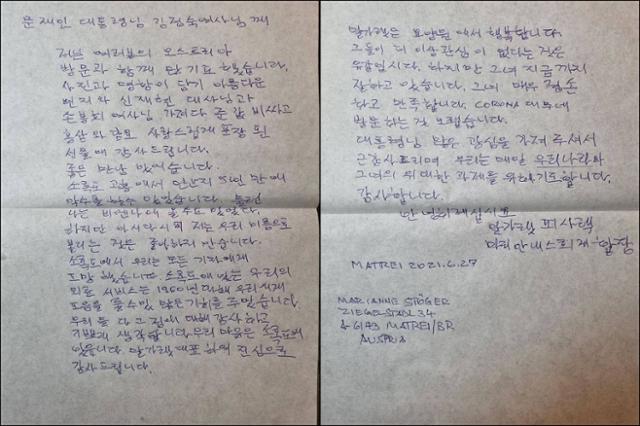 문재인 대통령님 김정숙여사님께
저는 여러분의 오스트리아
방문과 함께 만기표 했습니다.
사진과 명함이 담긴 아름다운
편지와 신재현 대사님과
손봉희 여사님 가져다 준 값 비싸고
홍삼와 담요 사랑스럽게 포장 된
선물에 감사드립니다.
좋은 만남 있었습니다.
소록도 고향에서 만난지 51년 만에
악수를 할수 있었습니다. 불편
나는 비엔나에 올수요 없었다.
하지만 아시다시피 저는 우리 이름으로
불리는 것은 좋아하지 않습니다.
소록도에서 우리는 모든 기자에게
도망 했습니다. 소록도에 있는 우리의
의료 서비스는 1960년대에 우리에게
도움을 줄수있 많은 기회를 주었습니다.
우리 둘 다 그 점에 대해 감사하고
기쁘게 생각합니다. 우리 마음은 소록도에
있습니다. 말가렛 대표 하여 진심으로
감사드립니다.
말가렛은 요양원에서 행복합니다.
그들이 더 이상 관심이 없다는 것은
유감입시다. 하지만 그녀 지금까지
잘하고 있습니다. 그녀 매우 겸손
하고 만족합니다. CORONA 때문에
방문하는 건 오랩습니다.
대통령님 많은 관심을 가져 주셔서
큰감사드리며 우리는 매일 우리나라와
그녀의 위대한 과제를 위해 기도합니다.
감사합니다.
안녕히 계십시오
말가렛 피사렉
마리안네 스퇴거-할망
MATREI 2021.6.27
MARIANNE STÖGER
ZIEGELSTADL 34
A 6143 MATREI/BR
AUSTRIA